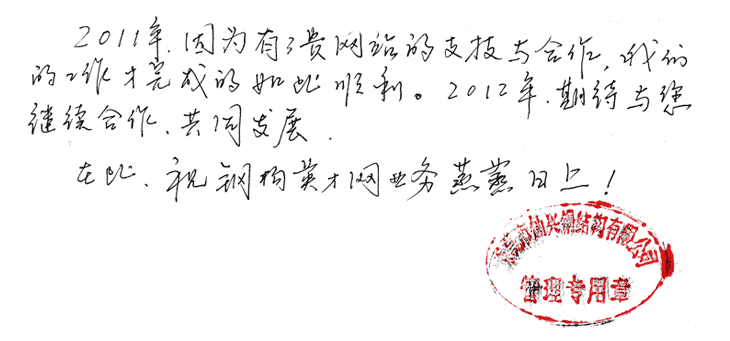 2011年,因为有了贵网站的支持与合作,我们
的工作才完成的如此顺利。2012年,期待与您
继续合作、共同发展.
在此、祝钢构英才网业务蒸蒸日上!
钢结构有限公司
管理专用章